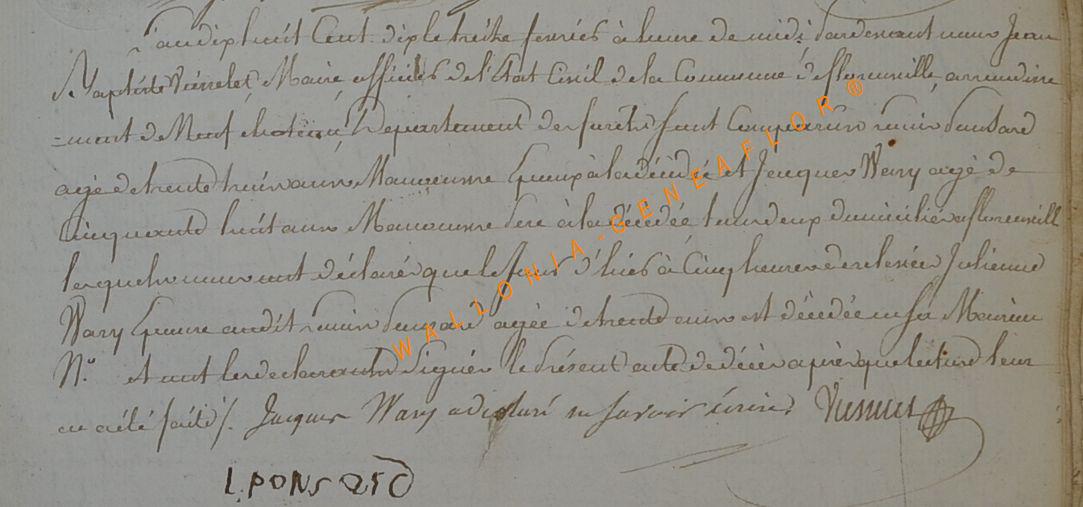 L'an dix huit Cent dix le treize fevrier à heure de midi pardevant nous Jean
Baptiste Maire officier de l'Etat Civil de la Commune de florenville, arrondisse
=ment de Neufchateau, Departement des forêts sont Comparus Ponsard
agé de trente huit ans Manoeuvre Epoux à la décédée et Jacques Wary agé de
Cinquante huit ans Manoeuvre Pere à la décédée tous deux domiciliés a florenville
lesquels nous ont déclaré que le jour d'hier à Cinq heures de relevée Julienne
Wary Epouse audit Ponsard agée de trente ans est décédée en sa Maison
N.° et ont les declarants signés le Présent acte de décès après que lecture leur
en a été faite /. Jacques Wary a declaré ne savoir écrire
L PONSARD
WALLONIA-GENEAFLOR®